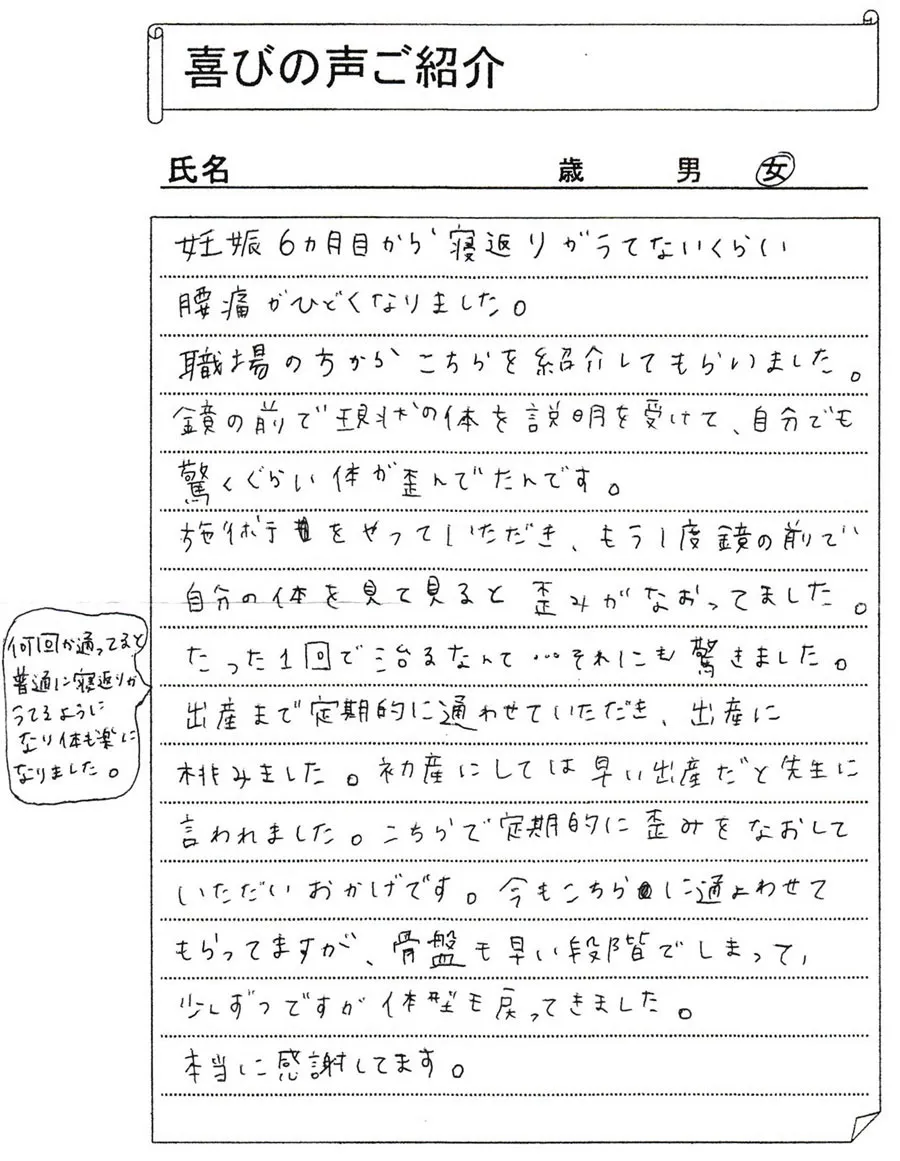 喜びの声ご紹介
氏名 歳 男 女
妊娠6カ月目から寝返りがうてないくらい
腰痛がひどくなりました。
職場の方からこちらを紹介してもらいました。
鏡の前で現状の体を説明を受けて、自分でも
驚くぐらい体が歪んでたんです。
施術をやっていただき、もう1度鏡の前で
自分の体を見て見ると歪みがなおってました。
たった1回で治るなんて…それにも驚きました。
何回か通ってると
普通に寝返りが
うてるように
なり体も楽に
なりました。
出産まで定期的に通わせていただき、出産に
挑みました。初産にしては早い出産だと先生に
言われました。こちらで定期的に歪みをなおして
いただいおかげです。今もこちらに通よわせて
もらってますが、骨盤も早い段階でしまって、
少しずつですが体型も戻ってきました。
本当に感謝してます。